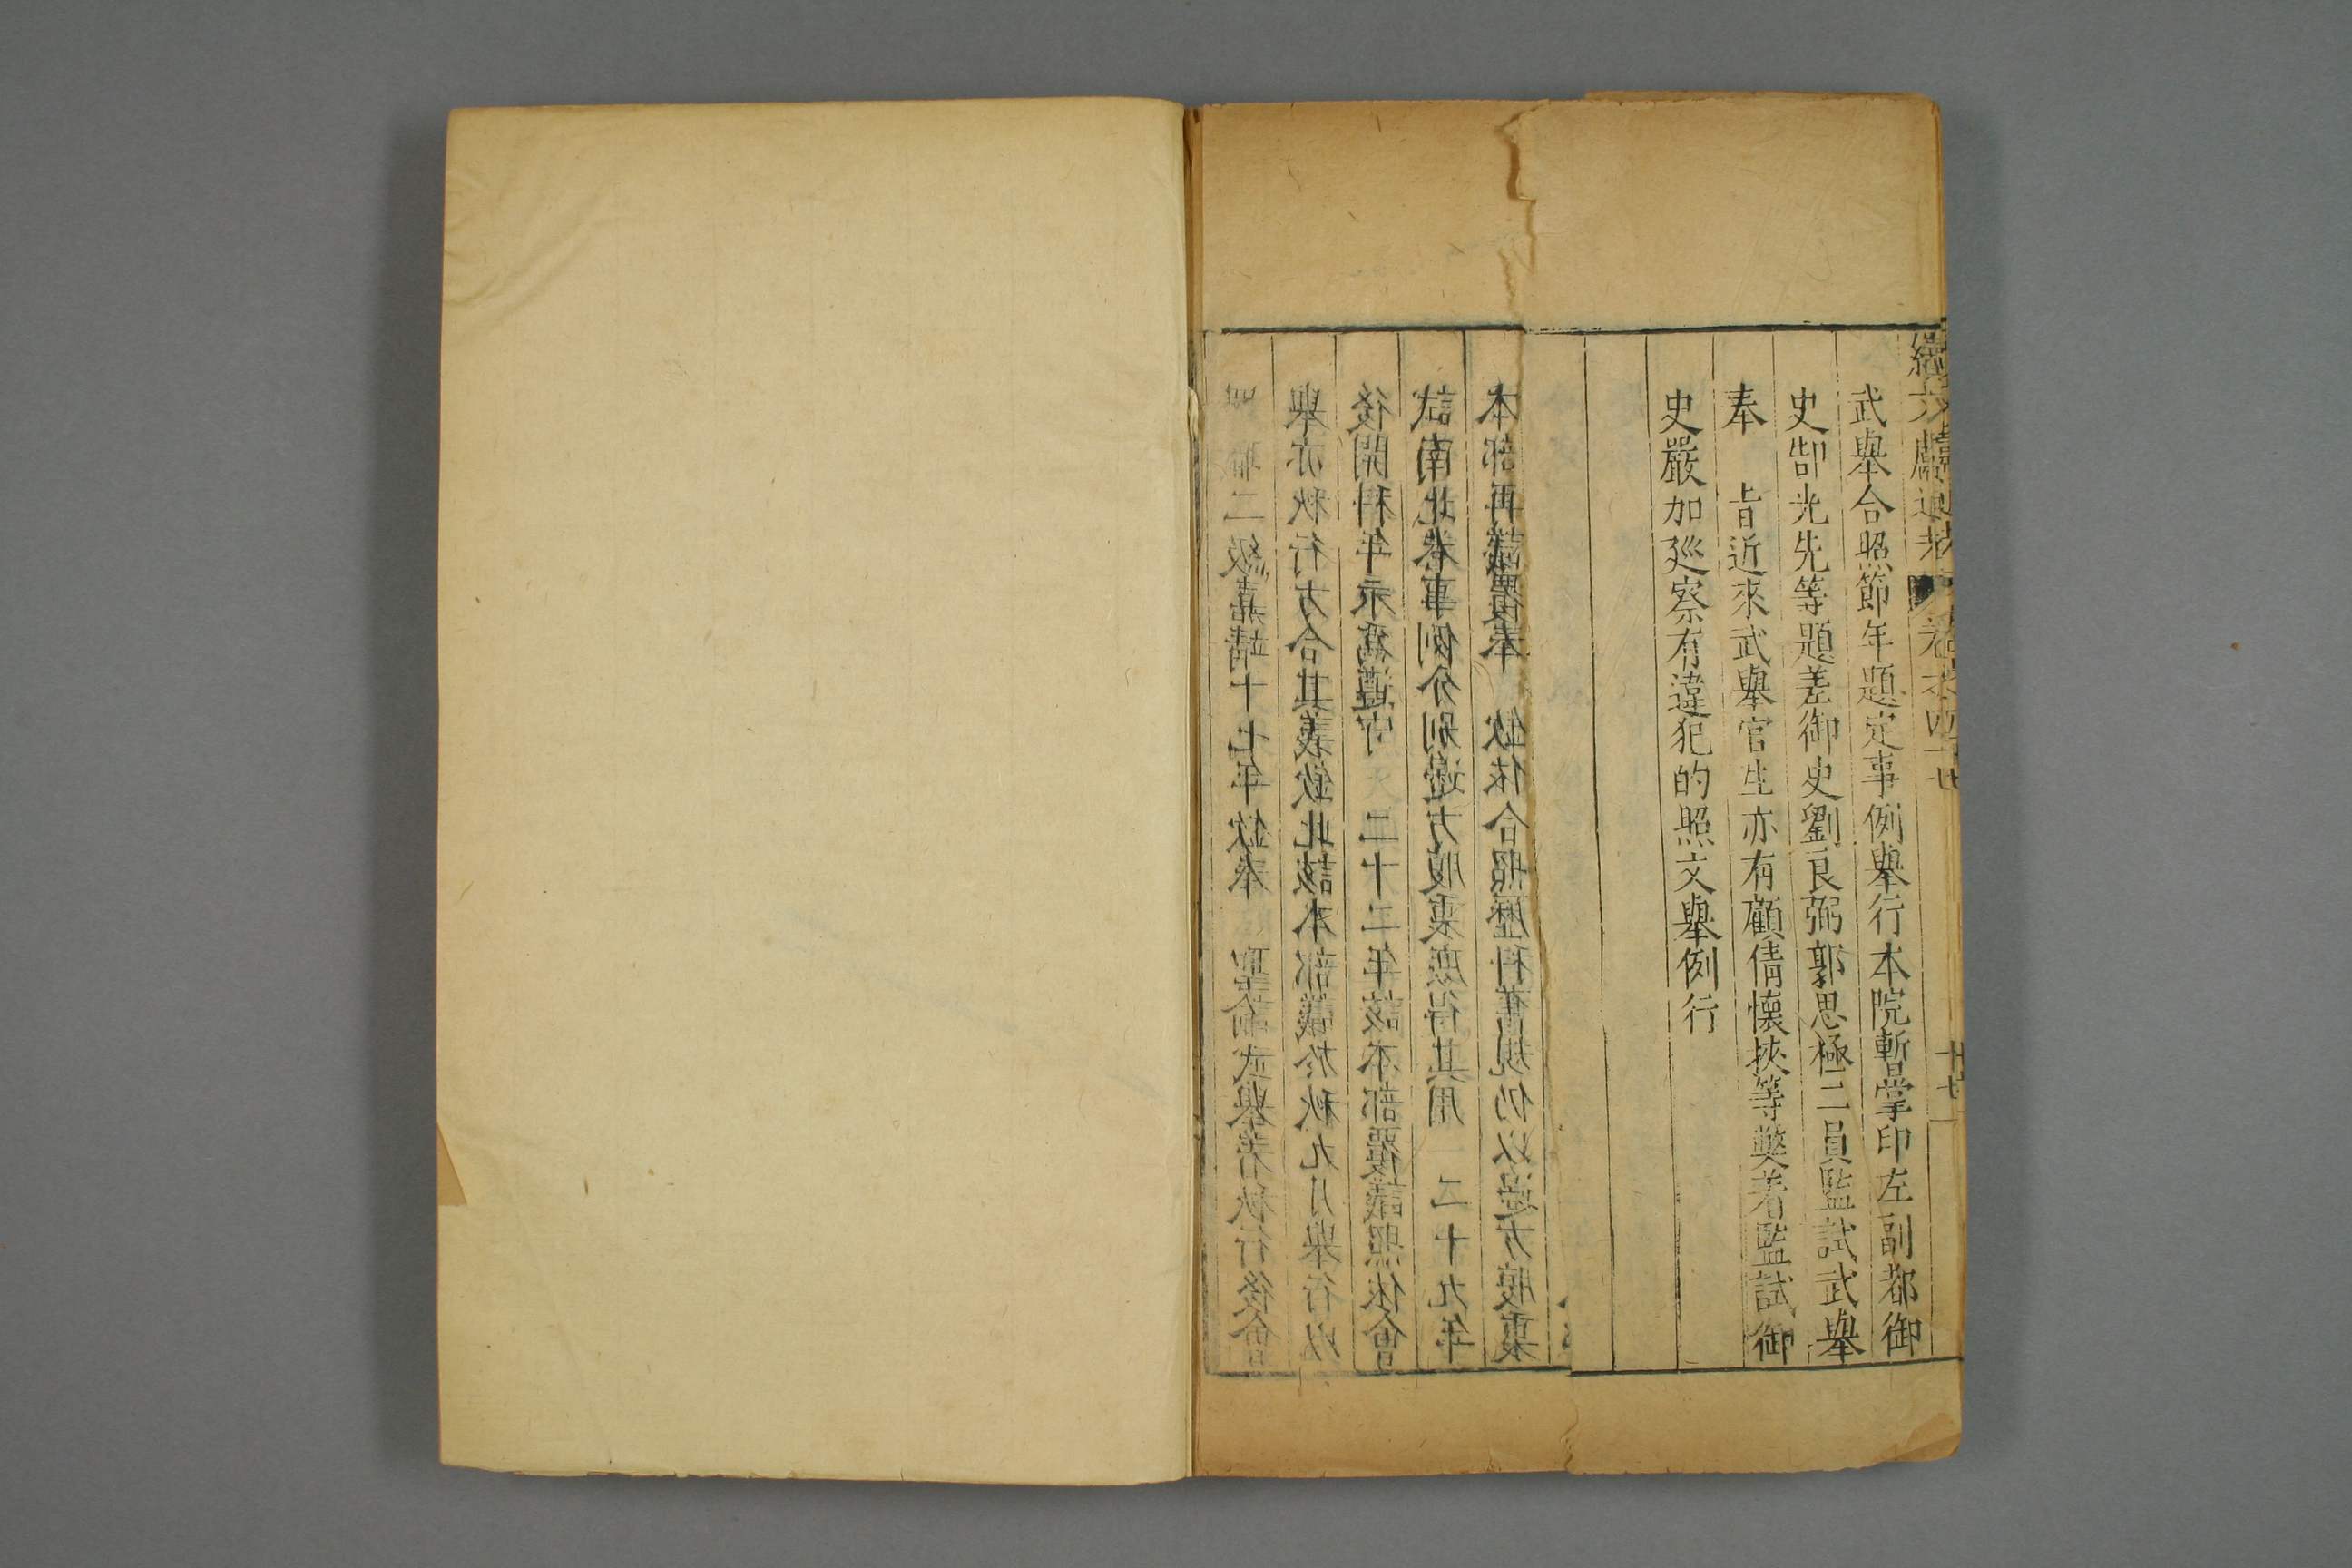 續文獻通考 卷之四十七
十七
武舉合照節年題定事例舉行本院暫掌印左副都御
史郜光先等題差御史劉良弼郭思極二員監試武舉
奉 旨近來武舉官生亦有顧倩懷挾等獘着監試御
史嚴加廵察有違犯的照文舉例行
本部再議覆奉 欽依合照歷科舊規仍以邊方腹裏
試南北卷事例分别邊方腹裏庶得其用 二十九年
後開科年永爲遵守 二十二年該本部覆議照依會
舉亦秋行方合其義欽此該本部議於秋九月舉行以
二級嘉靖十七年欽奉 聖諭武舉若秋行後會